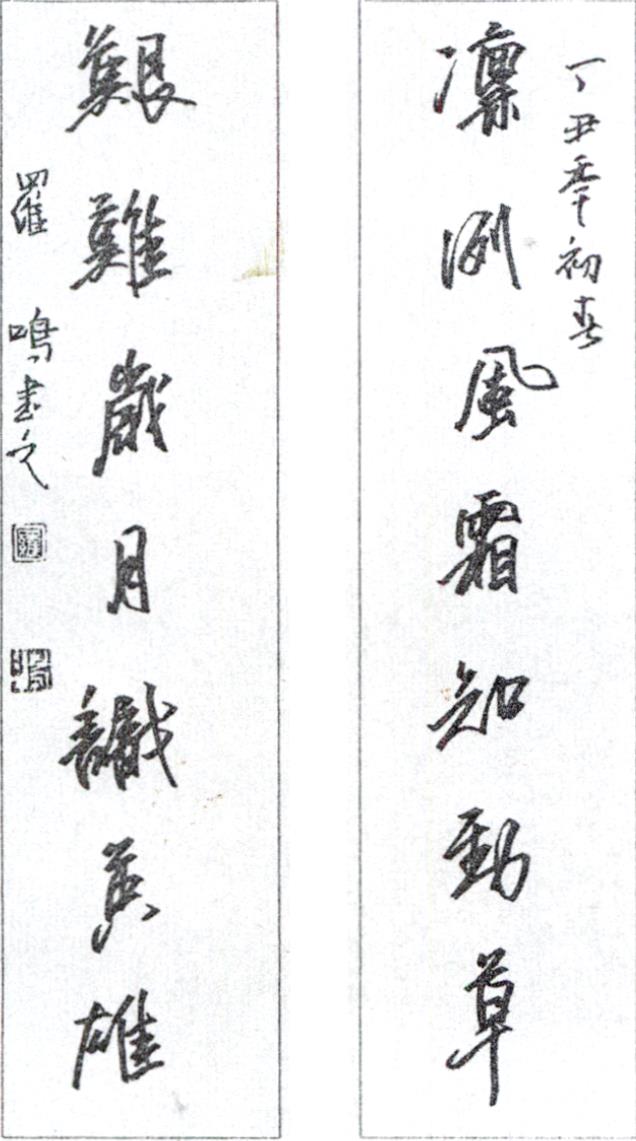 丁丑季初春
凛冽风霜知劲草
艱難歲月識英雄
羅鳴書之